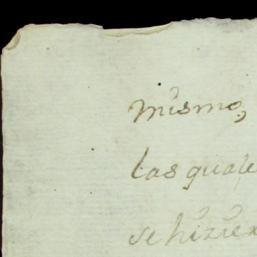 mismo,
las quale
se hizie